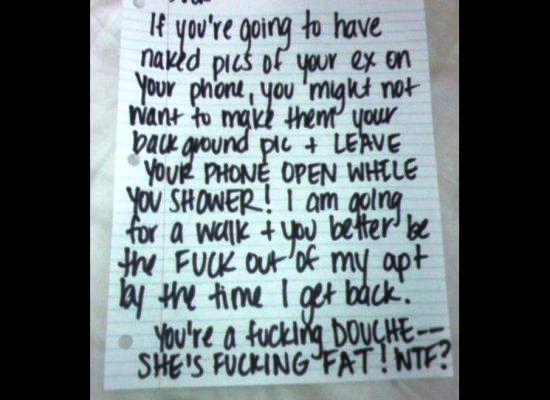 If you're going to have
naked pics of your ex on
your phone, you might not
want to make them your
background pic + LEAVE
YOUR PHONE OPEN WHILE
YOU SHOWER! I am going
for a walk + you better be
the FUCK out of my apt
by the time I get back.
You're a fucking DOUCHE--
SHE'S FUCKING FAT! NTF?